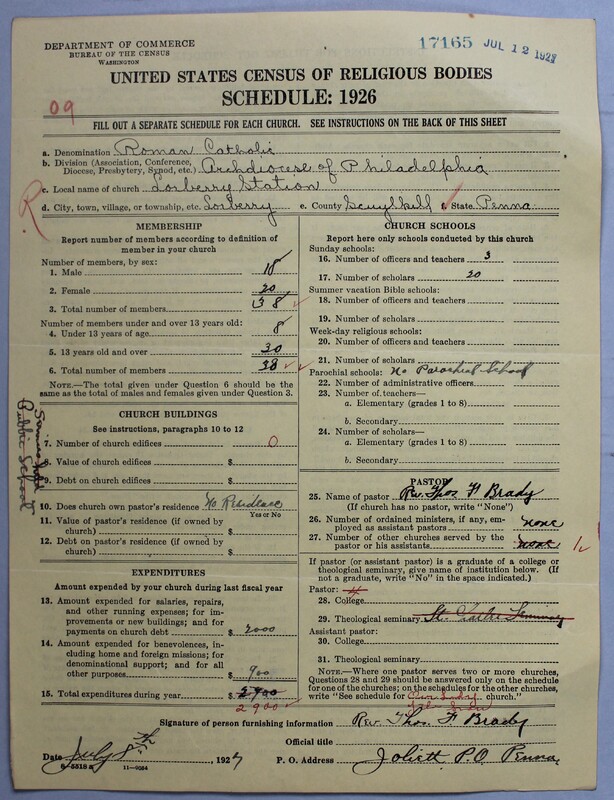 DEPARTMENT OF COMMERCE
BUREAU OF THE CENSUS
WASHINGTON
17165 JUL 12 1927
UNITED STATES CENSUS OF RELIGIOUS BODIES
SCHEDULE: 1926
09
FILL OUT A SEPARATE SCHEDULE FOR EACH CHURCH. SEE INSTRUCTIONS ON THE BACK OF THIS SHEET
a. Denomination Roman Catholic
b. Division (Association, Conference, Diocese, Presbytery, Synod, etc.) Archdiocese of Philadelphia
c. Local name of church Lorberry Station
d. City, town, village, or township, etc. Lorberry e. County Scuylkill f. State Penna
R
MEMBERSHIP
Report number of members according to definition of
member in your church
Number of members, by sex:
1. Male 18
2. Female 20
3. Total number of members 38
Number of members under and over 13 years old:
4. Under 13 years of age 8
5. 13 years old and over 30
6. Total number of members 38
NOTE.—The total given under Question 6 should be the
same as the total of males and females given under Question 3.
CHURCH BUILDINGS
See instructions, paragraphs 10 to 12
7. Number of church edifices 0
8. Value of church edifices $
9. Debt on church edifices $
10. Does church own pastor's residence No Residence
Yes or No
11. Value of pastor's residence (if owned by
church) $
12. Debt on pastor's residence (if owned by
church) $
Services held in
Public School
EXPENDITURES
Amount expended by your church during last fiscal year
13. Amount expended for salaries, repairs,
and other running expenses; for im-
provements or new buildings; and for
payments on church debt $ 2000
14. Amount expended for benevolences, in-
cluding home and foreign missions; for
denominational support; and for all
other purposes $ 900
15. Total expenditures during year $ 2900
2900
CHURCH SCHOOLS
Report here only schools conducted by this church
Sunday schools:
16. Number of officers and teachers 3
17. Number of scholars 20
Summer vacation Bible schools:
18. Number of officers and teachers
19. Number of scholars
Week-day religious schools:
20. Number of officers and teachers
21. Number of scholars
Parochial schools: No Parochial School
22. Number of administrative officers
23. Number of teachers—
a. Elementary (grades 1 to 8)
b. Secondary
24. Number of scholars—
a. Elementary (grades 1 to 8)
b. Secondary
PASTOR
25. Name of pastor Rev. Thos F Brady
(If church has no pastor, write "None")
26. Number of ordained ministers, if any, em-
ployed as assistant pastors none
27. Number of other churches served by the
pastor or his assistants none 1
If pastor (or assistant pastor) is a graduate of a college or
theological seminary, give name of institution below. (If
not a graduate, write "No" in the space indicated.)
Pastor:
28. College
29. Theological seminary St. Seminary
Assistant pastor:
30. College
31. Theological seminary
NOTE.—Where one pastor serves two or more churches,
Questions 28 and 29 should be answered only on the schedule
for one of the churches; on the schedules for the other churches,
write "See schedule for Our Lady church."
Signature of person furnishing information Rev. Thos. F Brady
Official title
Date July 8th, 1927 P. O. Address Joliett P.O. Penna.
8-5518a 11-9264